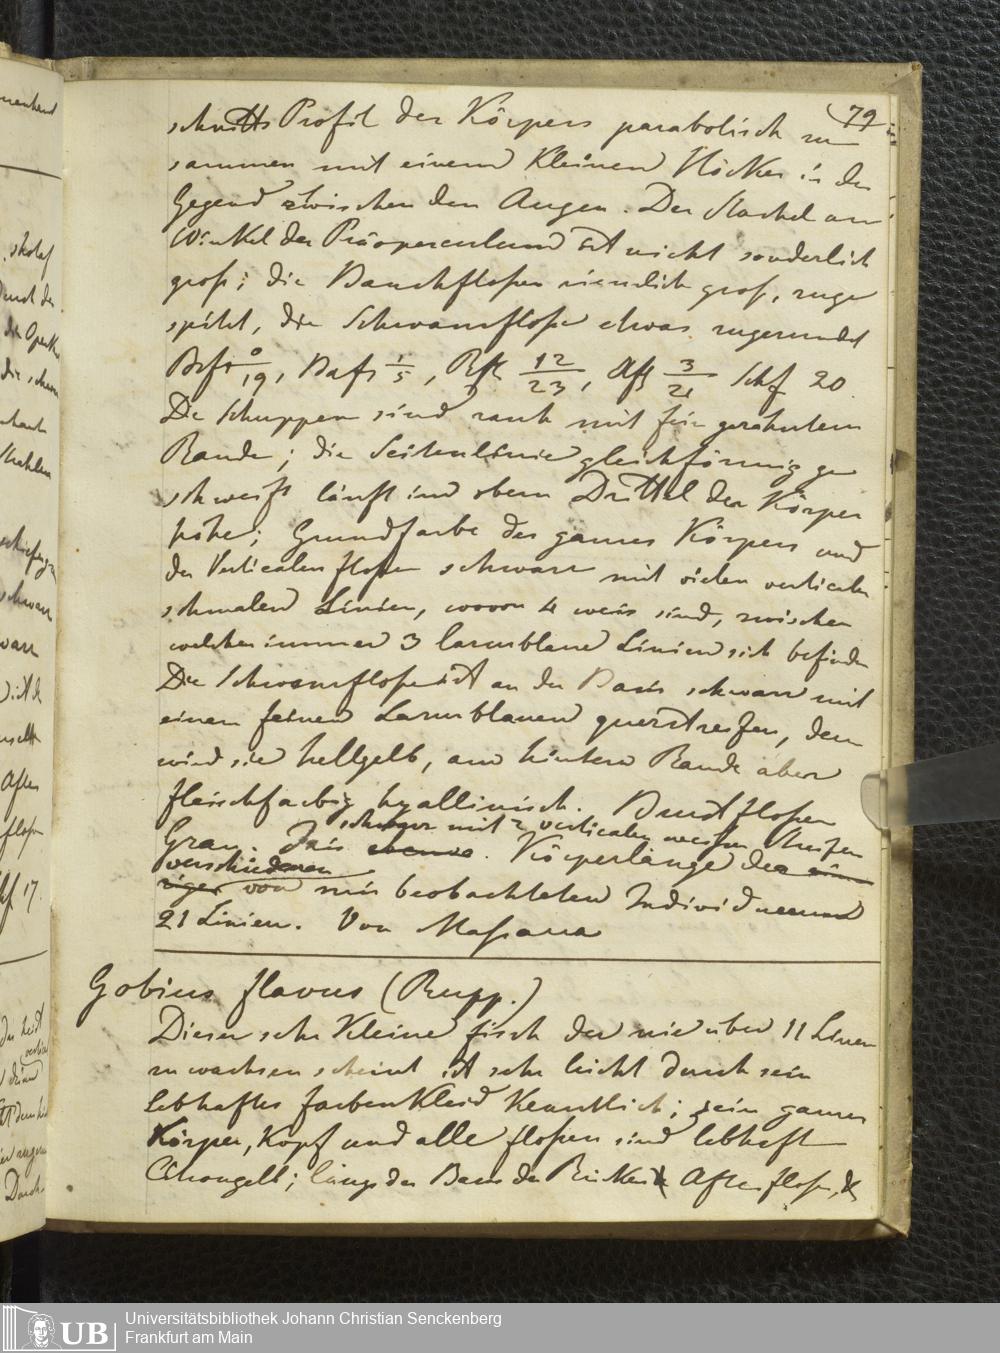 79
schnitts Profil des Körpers parabolisch zu
sammen mit einem kleinen Höcker in der
Gegend zwischen den Augen. Der Stachel am
Winkel des Präoperculum ist nicht sonderlich
groß; die Bauchfloßen ziemlich groß, zuge
spitzt, die Schwanzfloße etwas zugerundet
Brfß 0/19, Bafß 1/5, Rfß 12/23, Afß 3/21 Schf 20.
Die Schuppen sind rauh mit fein gezähntem
Rande; die Seitenlinie gleichförmig ge
schweift läuft im obern Drittel der Körper
höhe; Grundfarbe des ganzen Körpers und
der Verticalen floßen schwarz mit vielen verticalen
schmalen Linien, wovon 4 weis sind, zwischen
welchen immer 3 lazurblaue Linien sich befinden
Die Schwanzfloße ist an der Basis schwarz mit
einem feinen Lazurblauen querstreifen, dann
wird sie hellgelb, am hintern Rande aber
fleischfarbig hyallinisch. Brustfloßen
schwarz mit 2 verticalen weißen Streifen
Grau. Iris ebenso. Körperlänge des ein
verschiedenen
ziges von mir beobachteten Individueums
21 Linien. Von Maßaua
Gobius flavus (Rupp.)
Dieser sehr Kleine fisch der nie über 11 Linien
zu wachsen scheint ist sehr leicht durch sein
lebhaftes farbenkleid Kenntlich; sein ganzer
Körper, Kopf und alle floßen sind lebhaft
Citrongelb; längs der Basis der Rücken & Afterfloße, &
Universitätsbibliothek Johann Christian Senckenberg
Frankfurt am Main
UB